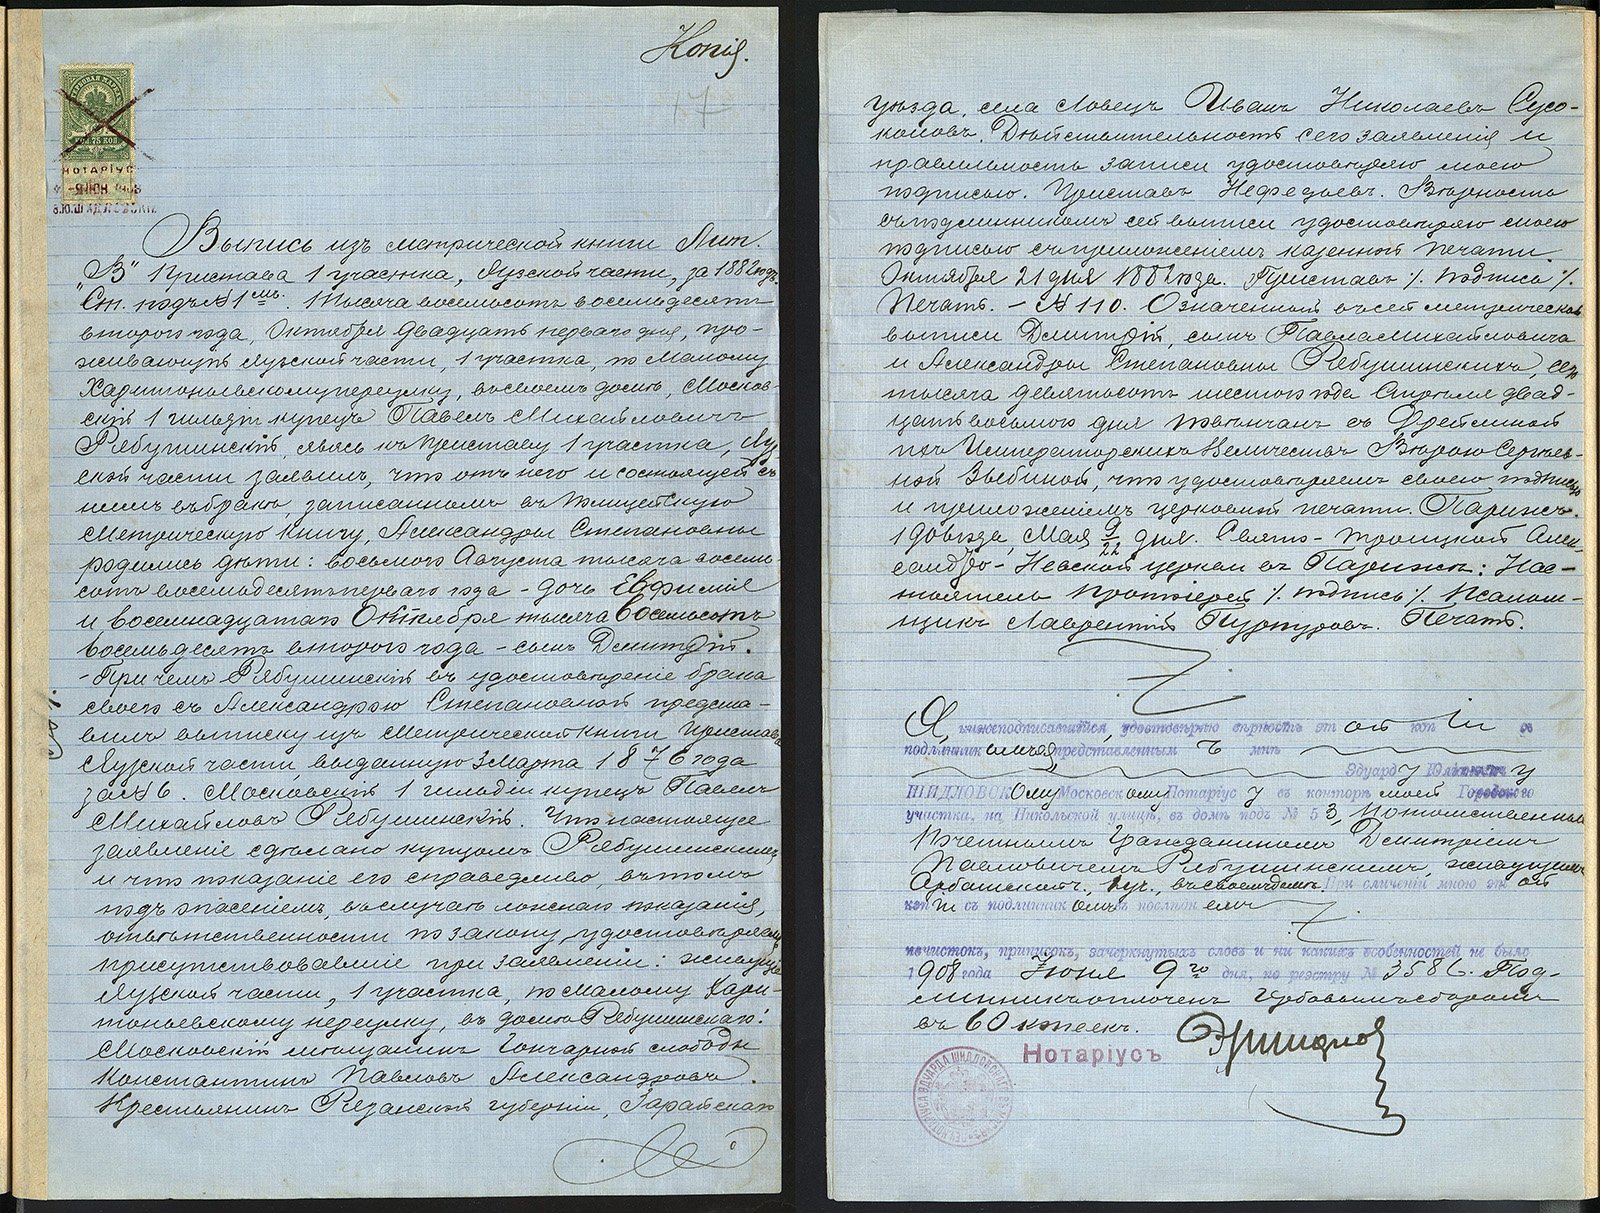 Копія.
17
ГЕРБОВАЯ МАРКА
75 КОП.
НОТАРІУСЪ
-9 ІЮН. 1908
Э.Ю.ШИДЛОВСКІЙ.
Выпись изъ метрической книги Лит.
„В" Пристава 1 участка, Яузской части, за 1882 годъ.
Ст. подъ № 1мъ. Тысяча восемьсотъ восемьдесятъ
второго года, Октября двадцать перваго дня, про-
живающій Яузской части, 1 участка, по Малому
Харитоньевскому переулку, въ своемъ домѣ, Москов-
скій 1 гильдіи купецъ Павелъ Михайловичъ
Рябушинскій, явясь къ Приставу 1 участка, Яуз-
ской части заявилъ, что отъ него и состоящей съ
нимъ въ бракѣ, записанномъ въ Полицейскую
Метрическую Книгу, Александры Степановны
родились дѣти: восьмого Августа тысяча восемь-
сотъ восемьдесятъ перваго года - дочь Евфимія
и восемнадцатаго Октября тысяча восемьсотъ
восемьдесятъ второго года - сынъ Дмитрій.
- При чемъ Рябушинскій въ удостовѣреніе брака
своего съ Александрою Степановной предста-
вилъ выписку изъ Метрической Книги Пристава
Яузской части, выданную 3 Марта 1876 года
за № 6. Московскій 1 гильдіи купецъ Павелъ
Михайловъ Рябушинскій. Что настоящее
заявленіе сдѣлано купцомъ Рябушинскимъ
и что показаніе его справедливо, въ томъ
подъ опасеніемъ, въ случаѣ ложнаго показанія,
отвѣтственности по закону, удостовѣряемъ
присутствовавшіе при заявленіи: живущіе
Яузской части, 1 участка, по Малому Хари-
тоньевскому переулку, въ домѣ Рябушинскаго:
Московскій мѣщанинъ Гончарной слободы
Константинъ Павловъ Александровъ.
Крестьянинъ Рязанской губерніи, Зарайскаго
уѣзда, села Ловецъ Иванъ Николаевъ Сусо-
коловъ. Дѣйствительность сего заявленія и
правильность записи удостовѣряю моею
подписью. Приставъ Нефедьевъ. Вѣрность
съ подлинникомъ сей выписи удостовѣряю моею
подписью съ приложеніемъ казенной печати.
Октября 21 дня 1882 года. Приставъ /. подпись /.
Печать. - № 110. Означенный въ сей метрической
выписи Дмитрій, сынъ Павла Михайловича
и Александры Степановны Рябушинскихъ, сего
тысяча девятьсотъ шестого года Апрѣля двад-
цать восьмого дня повѣнчанъ съ Фрейлиной
Ихъ Императорскихъ Величествъ Вѣрою Сергѣев-
ной Зыбиной, что удостовѣряемъ своею подписью
и приложеніемъ церковной печати. Парижъ.
1906 года, Мая 9/22 дня. Свято-Троицкой Алек-
сандро-Невской церкви въ Парижѣ: Нас-
тоятель Протоіерей /. подпись /. Псалом-
щикъ Лаврентій Пурпуровъ. Печать.
Я, нижеподписавшійся, удостовѣряю вѣрность этой копіи съ
подлинникомъ ея, представленнымъ мнѣ
Эдуарду Юліановичу
ШИДЛОВСКОму Московскому Нотаріусу въ конторѣ моей Городского
участка, на Никольской улицѣ, въ домѣ подъ № 5 3, Потомственнымъ
Почетнымъ Гражданиномъ Дмитріемъ
Павловичемъ Рябушинскимъ, живущимъ
Арбатской ч., въ своемъ домѣ. При сличеніи мною этой
копіи съ подлинникомъ въ послѣднемъ
почистокъ, приписокъ, зачеркнутыхъ словъ и никакихъ особенностей не было
1908 года Іюня 9го дня, по реестру № 3586. Под-
линникъ оплоченъ гербовымъ сборомъ
въ 60 копѣекъ.
Нотаріусъ